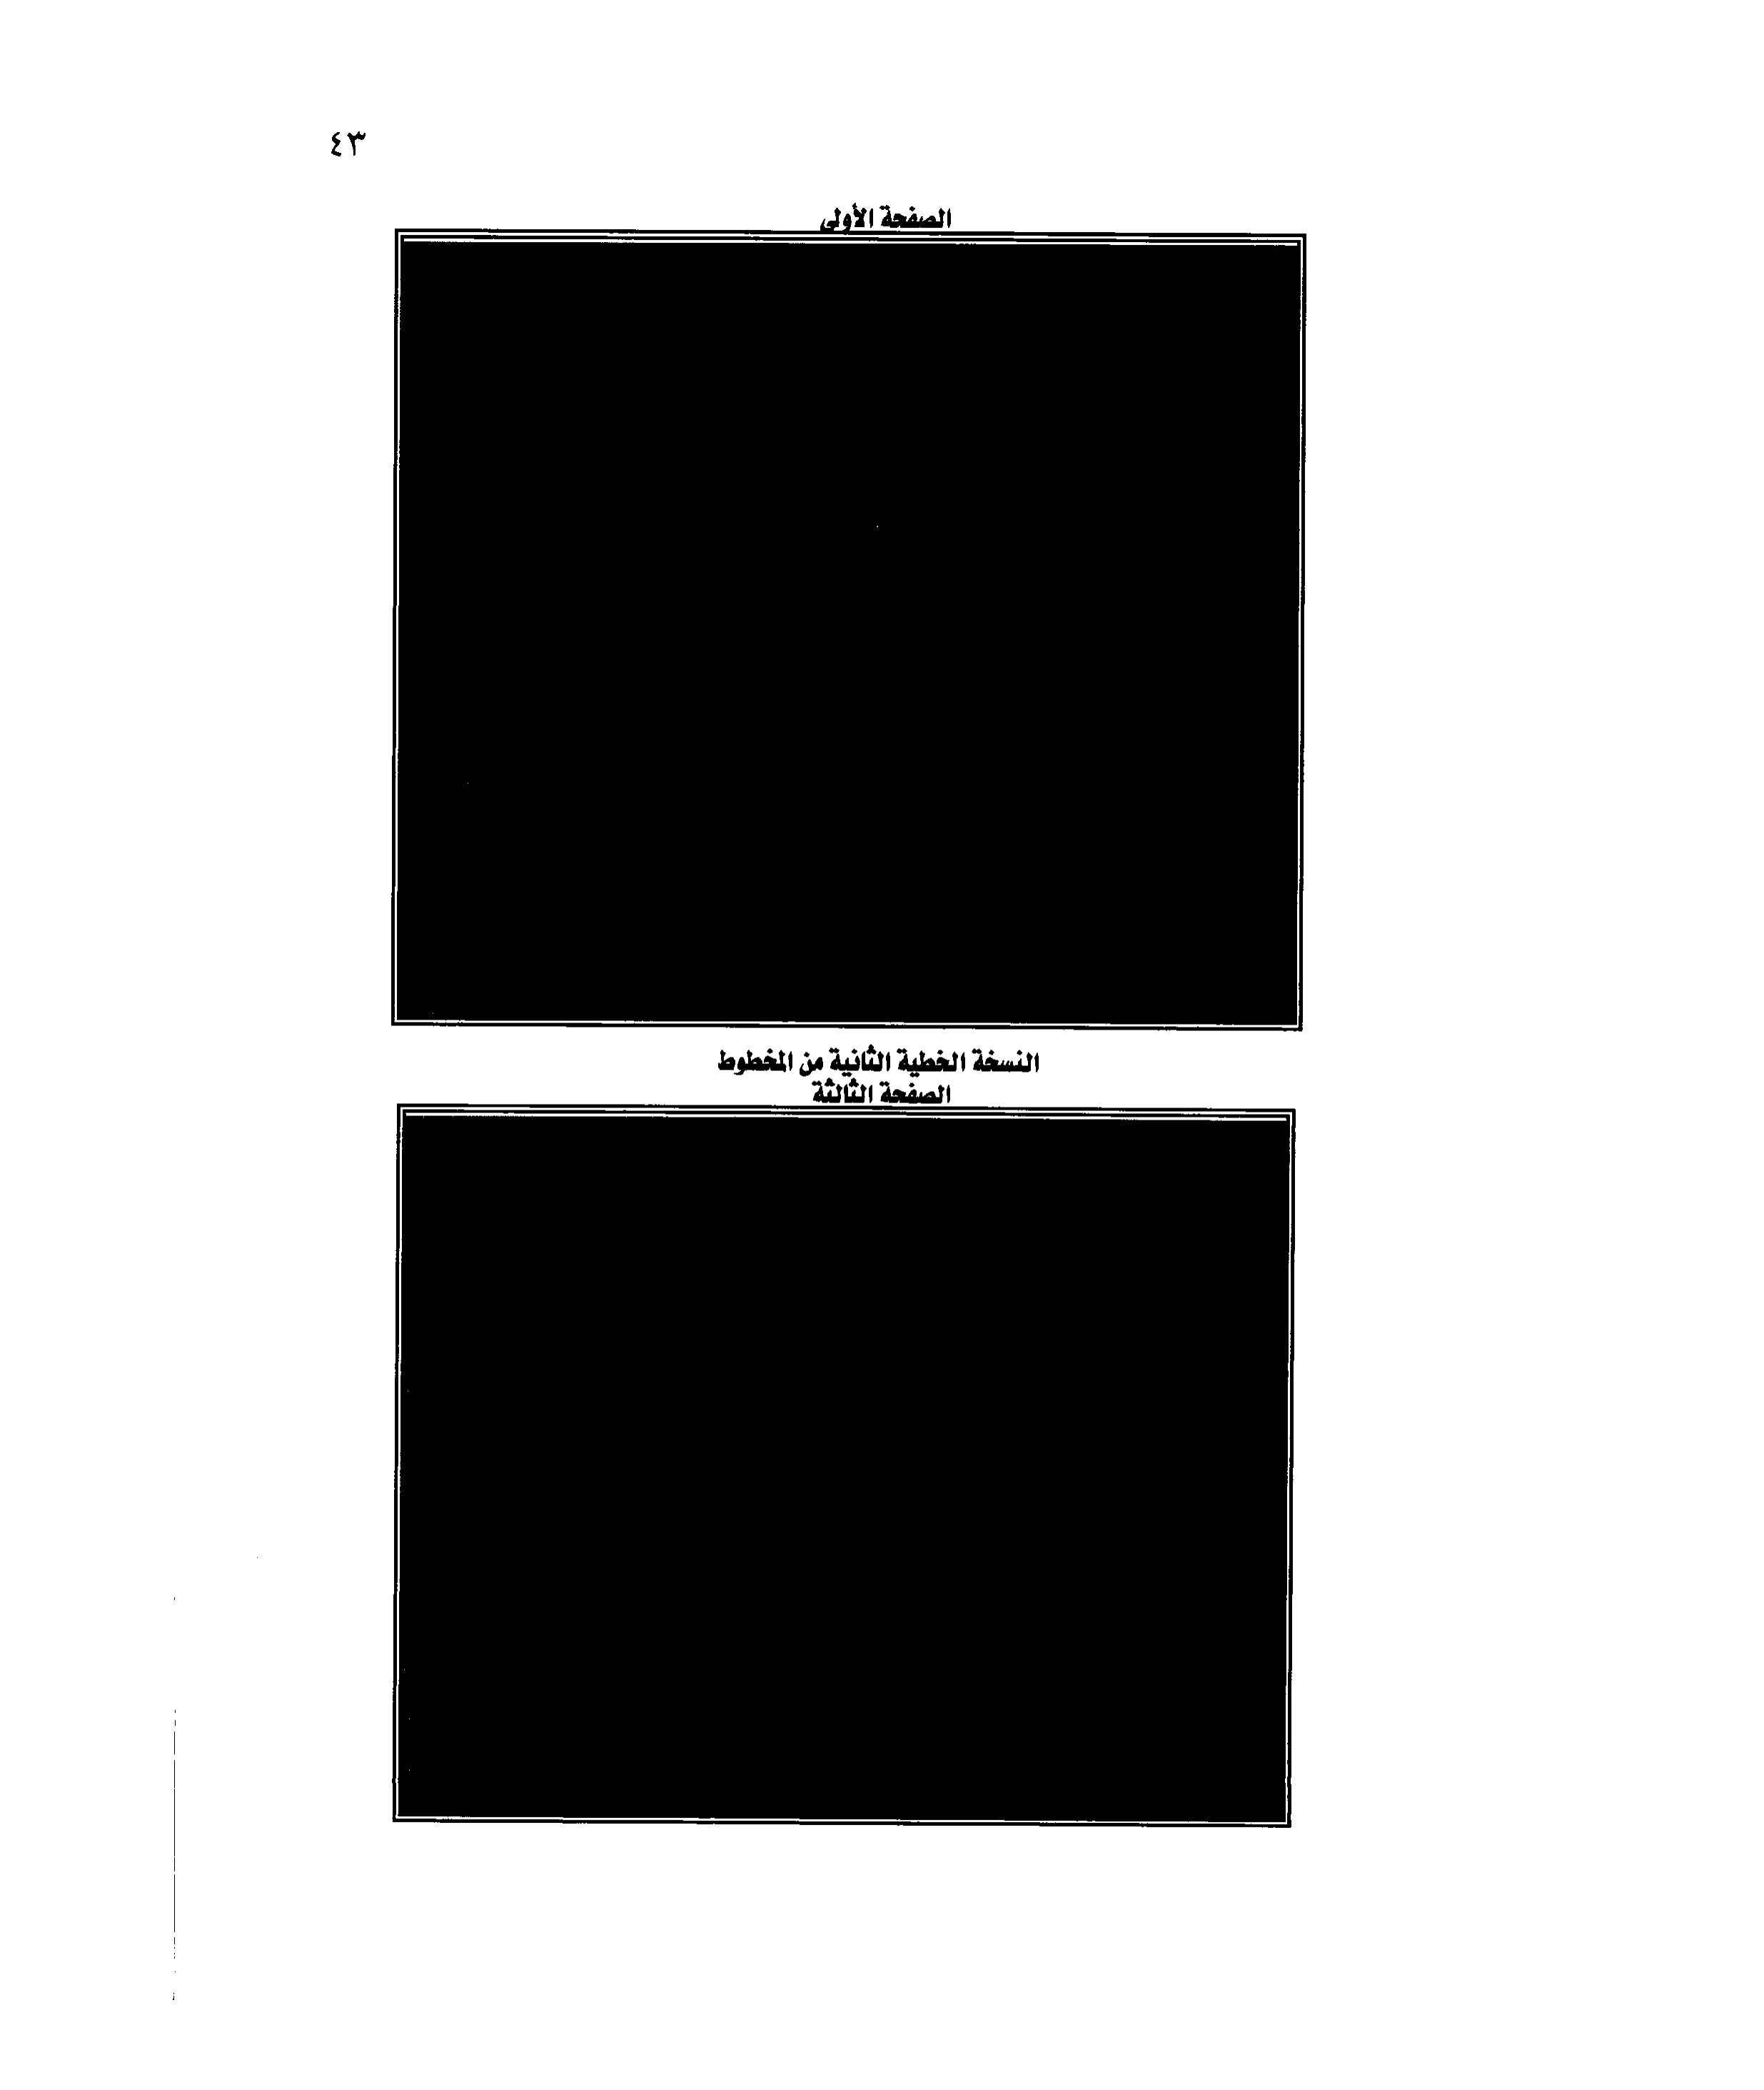 ٤٣
الصفحة الأولى
النسخة الخطية الثانية من المخطوط
الصفحة الثالثة